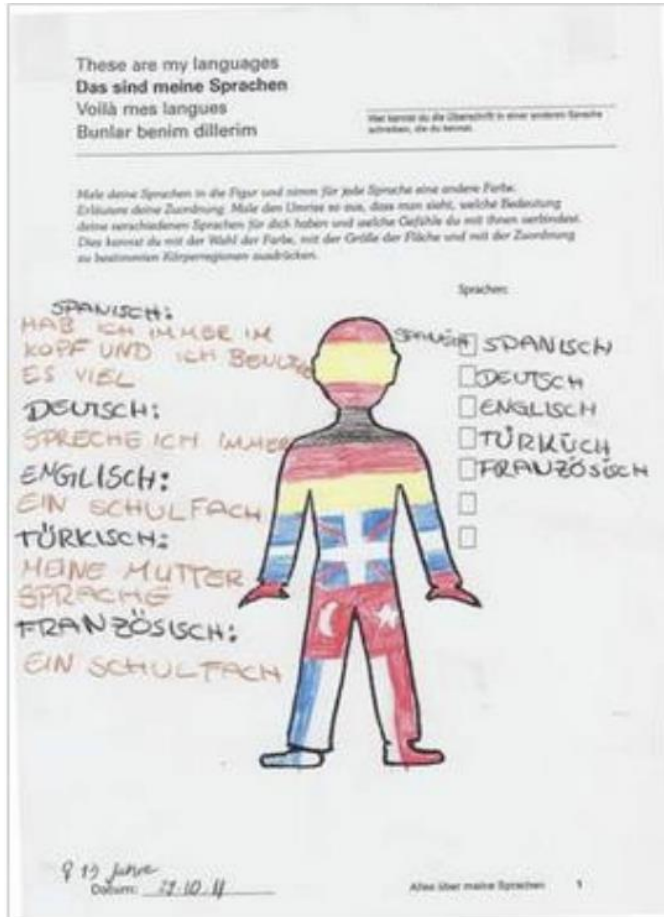 These are my languages
Das sind meine Sprachen
Voilà mes langues
Bunlar benim dillerim
Hier kannst du die Überschrift in einer anderen Sprache
schreiben, die du kennst.
Male deine Sprachen in die Figur und nimm für jede Sprache eine andere Farbe.
Erläutere deine Zuordnung. Male den Umriss so aus, dass man sieht, welche Bedeutung
deine verschiedenen Sprachen für dich haben und welche Gefühle du mit ihnen verbindest.
Dies kannst du mit der Wahl der Farbe, mit der Größe der Fläche und mit der Zuordnung
zu bestimmten Körperregionen ausdrücken.
Sprachen:
SPANISCH:
HAB ICH IMMER IM
KOPF UND ICH BENUTZE
ES VIEL
DEUTSCH:
SPRECHE ICH IMMER
ENGLISCH:
EIN SCHULFACH
TÜRKISCH:
MEINE MUTTER
SPRACHE
FRANZÖSISCH:
EIN SCHULFACH
SPANISCH
DEUTSCH
ENGLISCH
FRANZÖSISCH
Jahre
Datum:
Alles über meine Sprachen 1